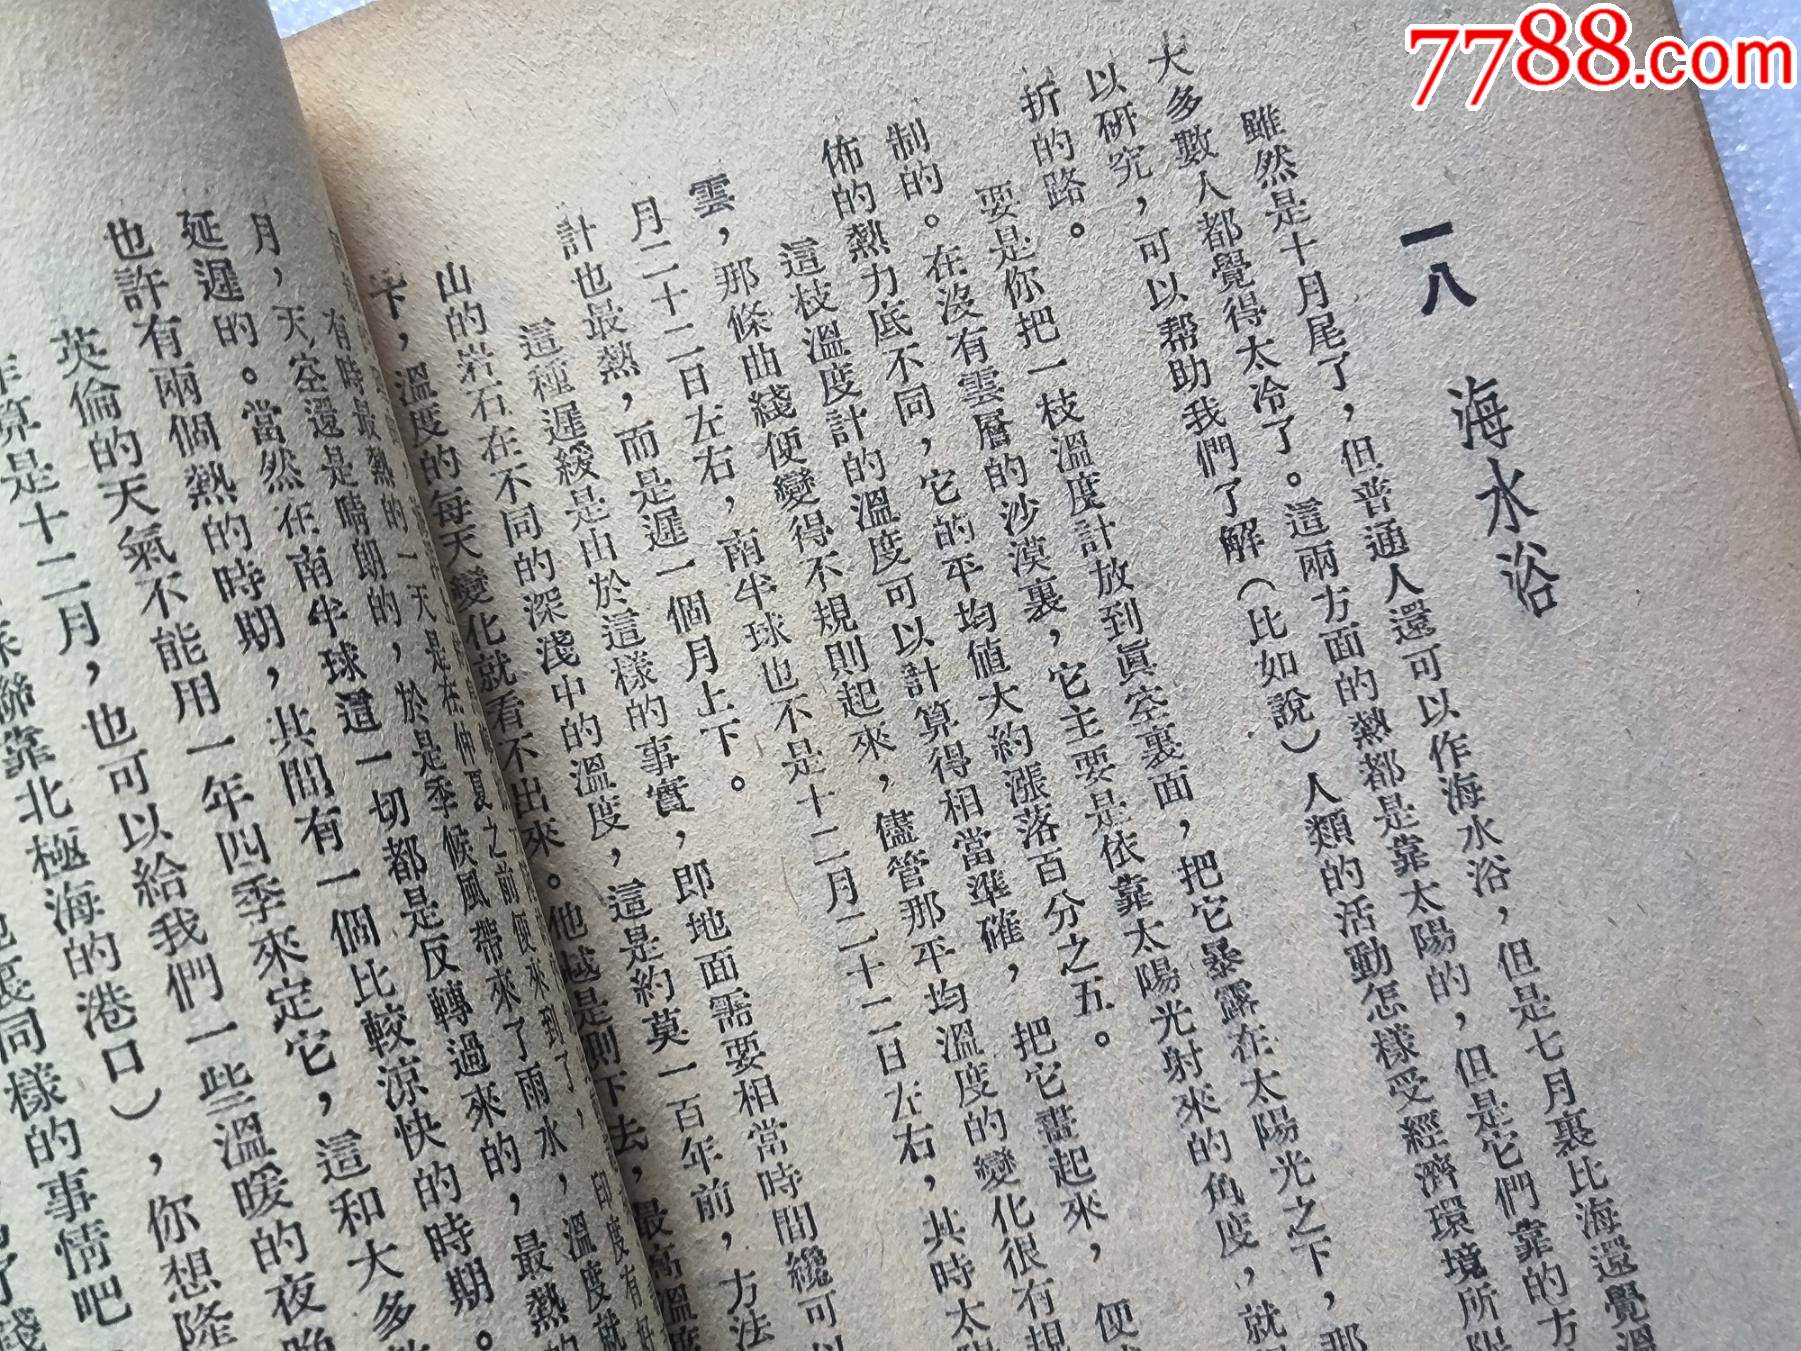 7788.com
一八 海水浴
雖然是十月尾了，但普通人還可以作海水浴，但是七月裏比海還覺溫
大多數人都覺得太冷了。這兩方面的熱都是靠太陽的，但是它們靠的方
以研究，可以帮助我們了解（比如說）人類的活動怎樣受經濟環境所限
折的路。
要是你把一枝溫度計放到眞空裏面，把它暴露在太陽光之下，那
制的。在沒有雲層的沙漠裏，它主要是依靠太陽光射來的角度，就
佈的熱力底不同，它的平均値大約漲落百分之五。
這枝溫度計的溫度可以計算得相當準確，把它畫起來，便
雲，那條曲綫便變得不規則起來，儘管那平均溫度的變化很有規
月二十二日左右，南半球也不是十二月二十二日左右，其時太陽
計也最熱，而是遲一個月上下。
這種遲緩是由於這樣的事實，即地面需要相當時間纔可
山的岩石在不同的深淺中的溫度，這是約莫一百年前，方法
下，溫度的每天變化就看不出來。他越是則下去，最高溫度
有時最熱的一天是在仲夏之前便來到了，印度有好
月，天空還是晴朗的，於是季候風帶來了雨水，溫度就
延遲的。當然在南半球這一切都是反轉過來的，最熱的
也許有兩個熱的時期，共間有一個比較涼快的時期。
英倫的天氣不能用一年四季來定它，這和大多
算是十二月，也可以給我們一些溫暖的夜晚
聯靠北極海的港口），你想隆
裏同樣的事情吧